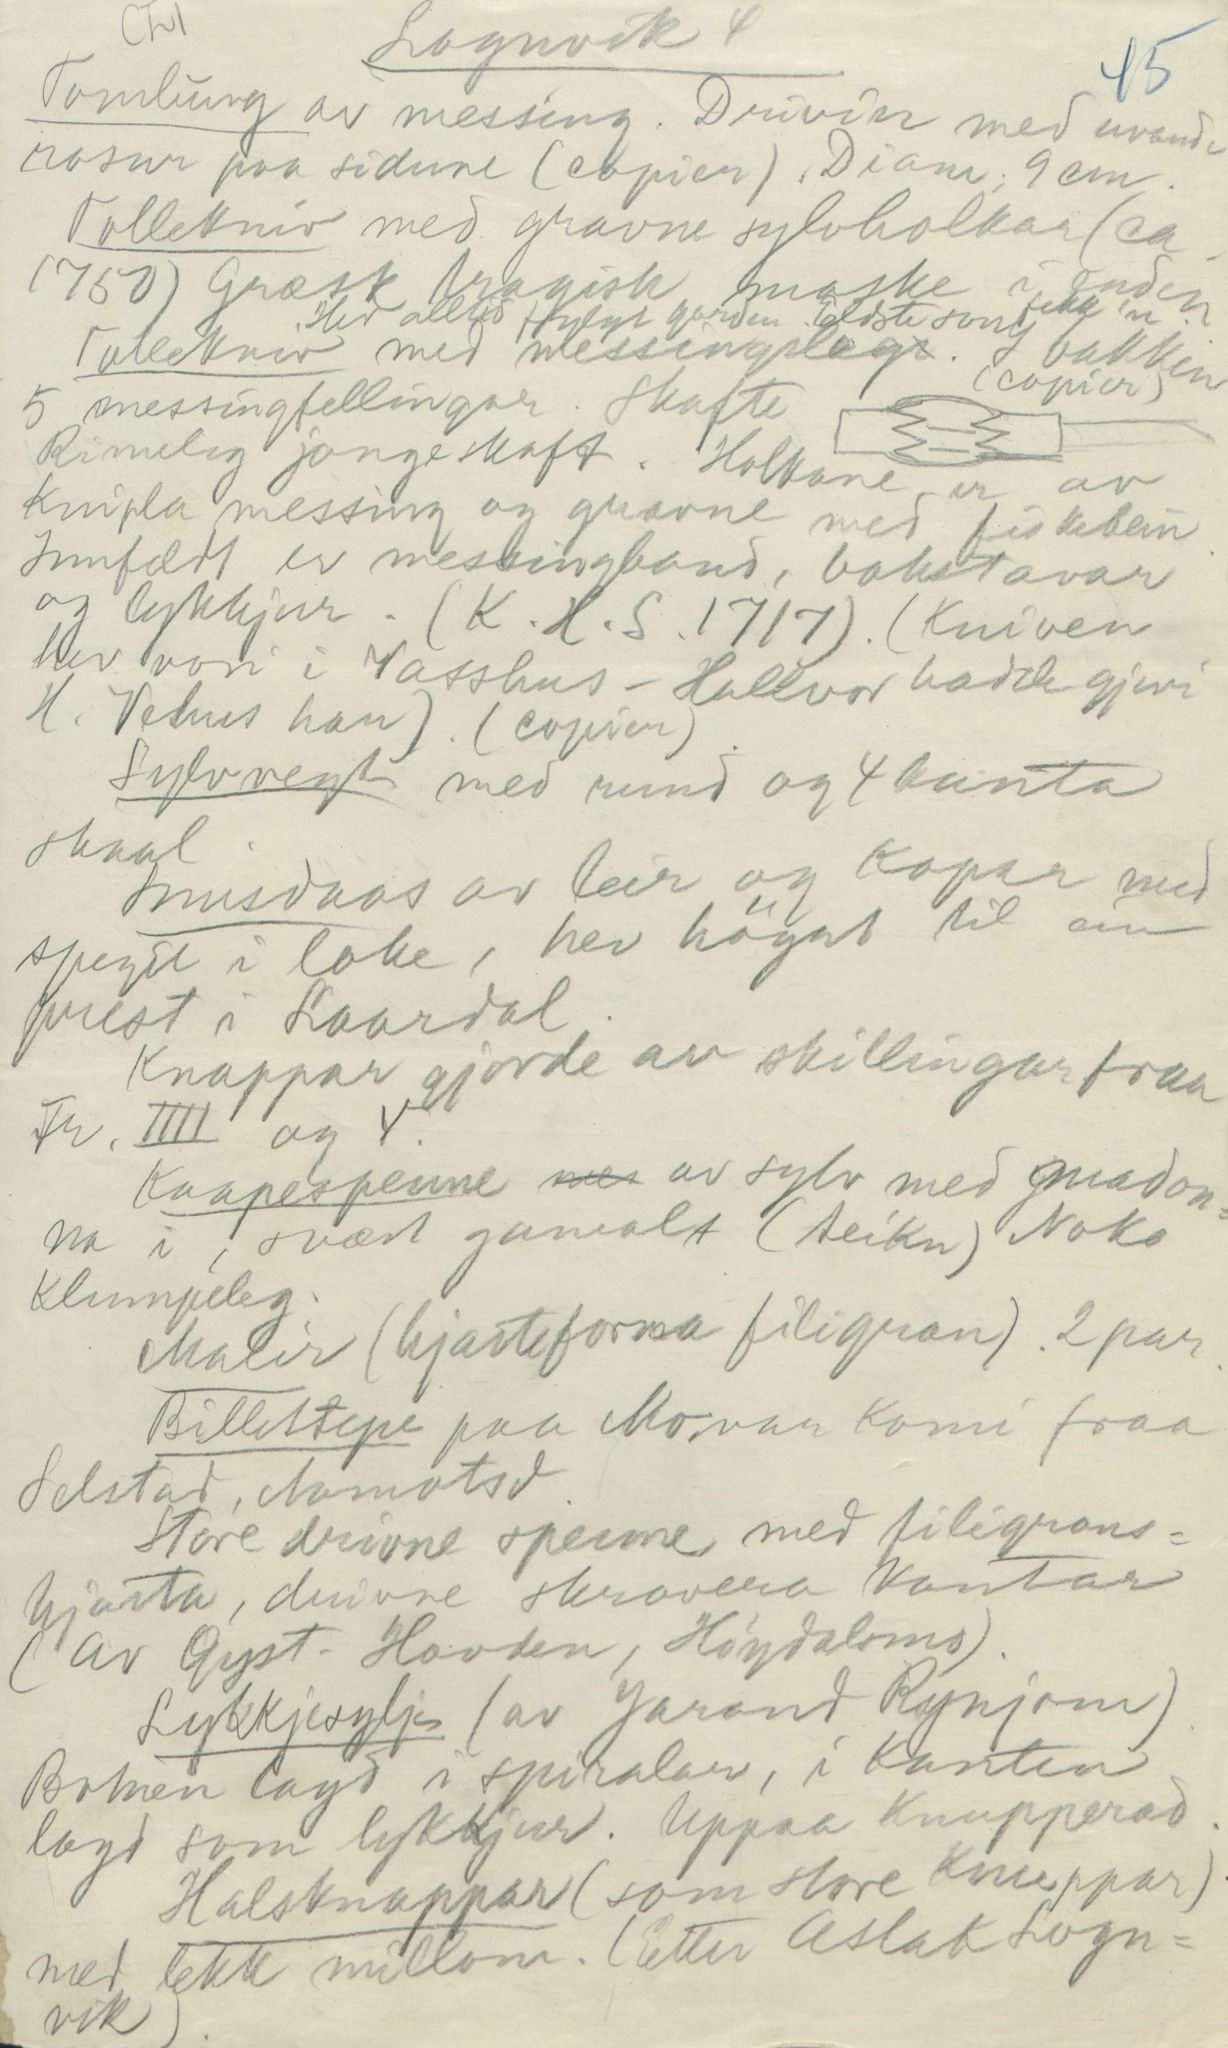 Lognvik 4
45
Tomlung av messing. Drivin med
rosur paa sidune (copier). Diam. 9 cm.
Tollekniv med gravne sylvholkar (ca.
1750) Græsk tragisk maske i enden
Hev alltid fylgt garden. Eldste son fekk 'n.
Tollekniv med messingslegr. I bakken
(copier)
5 messingfellingar. Skafte
Rimeleg jonge skaft. Holkane er av
Knipla messing og gravne med fiskebein.
Innfældt er messingband, bokstavar
og lykkjur. (K. H. S. 1717). (Kniven
hev vori i Vasshus - Hallvor hadde gjevi
H. Vehus han). (copier).
Sylvvegt med rund og 4 kanta
skaal.
Snusdaas av leir og Kopar med
spegil i loke, hev høyrt til ein
prest i Laardal.
Knappar gjorde av skillingar fraa
Fr. IIII og V.
Kaapespenne av sylv med madon=
na i, svært gamalt (teikn) Noko
Klumpeleg.
Malir (hjarteforma filigran). 2 par.
Billettepe paa Mo, var komi fraa
Selstad, Aamotsd.
Store drivne spenne med filigrans=
hjarta, drivne skravera Kantar
(av Gyst. Hovden, Høydalsmo).
Lykkjesylje (av Jarand Rynjom).
Botnen lagd i spiralar, i Kanten
lagd som lykkjur. Uppaa Knupperad.
Halsknappar (som store Knuppar)
med lekk millom. (Etter Aslak Logn=
vik).